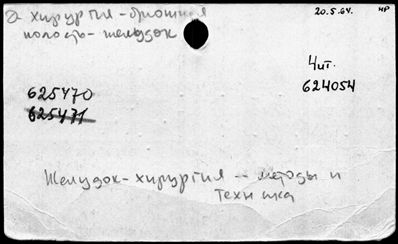 а хирургия - брюшная 20.5.64. НР
полость - желудок
Чит.
624054
625470
625471
Желудок - хирургия -- методы и
техника